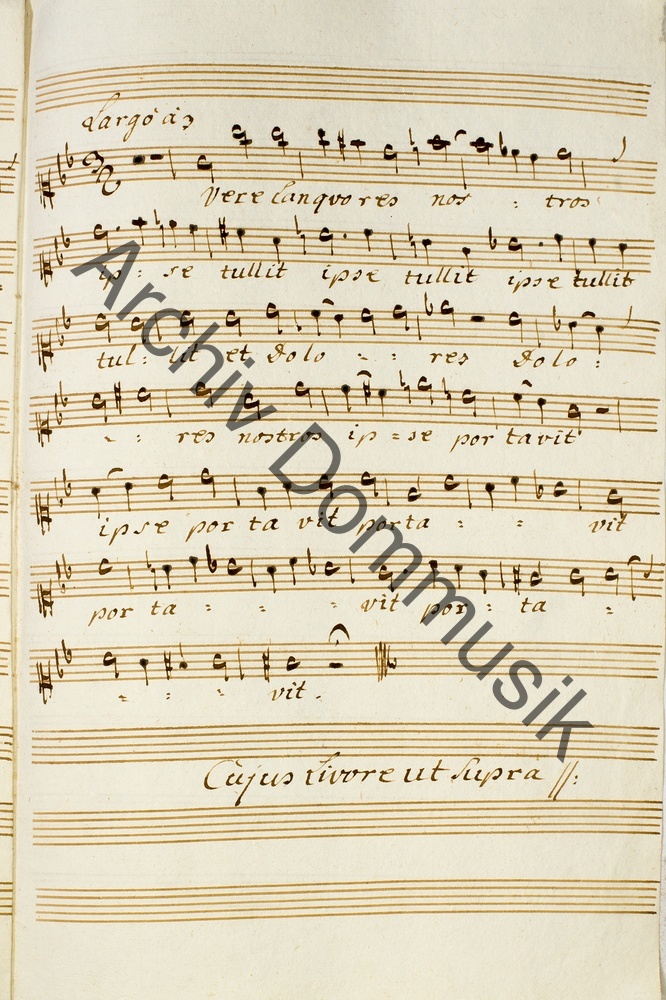 Largo à 3
Vere languores nos : tros
ip : se tullit ipse tullit ipse tullit
tul : lit et dolo - : res dolo :
- : res nostros ip = se por tavit
ipse por ta vit porta : : vit
por ta : : : vit por : ta :
: : : vit .
Cujus livore ut Supra //:
Archiv Dommusik